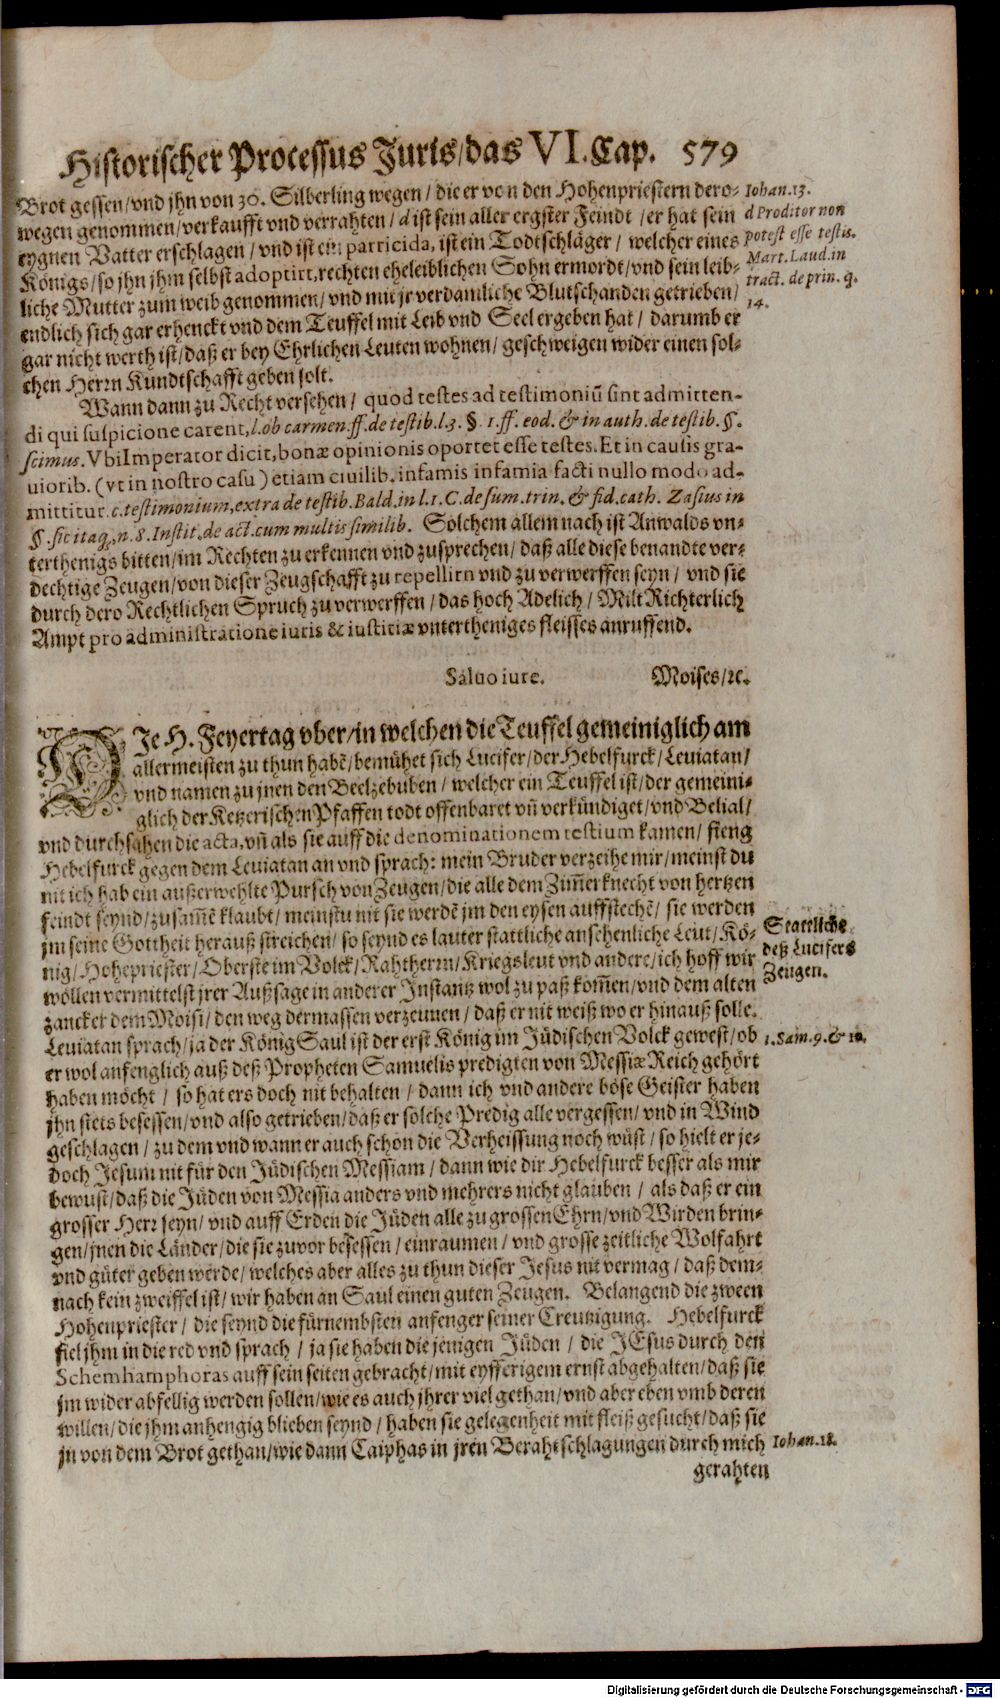 Historischer Processus Juris/das VI. Cap. 579
Brot gessen/vnd jhn von 30. Silberling wegen/die er von den Hohenpriestern dero-
wegen genommen/verkaufft vnd verrahten/ d ist sein aller ergster Feindt/er hat sein
eygnen Vatter erschlagen/vnd ist ein patricida, ist ein Todtschläger/welcher eines
Königs/so jhn jhm selbst adoptirt, rechten eheleiblichen Sohn ermordt/vnd sein leib-
liche Mutter zum weib genommen/vnd mit jr verdamliche Blutschanden getrieben/
endlich sich gar erhenckt vnd dem Teuffel mit Leib vnd Seel ergeben hat/darumb er
gar nicht werth ist/daß er bey Ehrlichen Leuten wohnen/geschweigen wider einen sol-
chen Herrn Kundtschafft geben solt.
Iohan. 13.
d Proditor non
potest esse testis.
Mart. Laud. in
tract. de prin. q.
14.
Wann dann zu Recht versehen/ quod testes ad testimoniū sint admitten-
di qui suspicione carent, l. ob carmen. ff. de testib. l. 3. §. 1. ff. eod. & in auth. de testib. §.
scimus. Vbi Imperator dicit, bonæ opinionis oportet esse testes. Et in causis gra-
uiorib. (vt in nostro casu) etiam ciuilib. infamis infamia facti nullo modo ad-
mittitur. c. testimonium, extra de testib. Bald. in l. 1. C. de sum. trin. & fid. cath. Zasius in
§. sic itaq;, n. 8. Instit. de act. cum multis similib. Solchem allem nach ist Anwalds vn-
terthenigs bitten/im Rechten zu erkennen vnd zusprechen/daß alle diese benandte ver-
dechtige Zeugen/von dieser Zeugschafft zu repellirn vnd zu verwerffen seyn/vnd sie
durch dero Rechtlichen Spruch zu verwerffen/das hoch Adelich/Milt Richterlich
Ampt pro administratione iuris & iusticiæ vntertheniges fleisses anruffend.
Saluo iure. Moises/ꝛc.
DJe H. Feyertag vber/in welchen die Teuffel gemeiniglich am
allermeisten zu thun habē/bemühet sich Lucifer/der Hebelfurck/Leviatan/
vnd namen zu jnen den Beelzebuben/welcher ein Teuffel ist/der gemeini-
glich der Ketzerischen Pfaffen todt offenbaret vn̄ verkündiget/vnd Belial/
vnd durchsahen die acta, vn̄ als sie auff die denominationem testium kamen/fieng
Hebelfurck gegen dem Leviatan an vnd sprach: mein Bruder verzeihe mir/meinst du
nit ich hab ein außerwehlte Pursch von Zeugen/die alle dem Zim̄erknecht von hertzen
feindt seynd/zusam̄ē klaubt/meinstu nit sie werdē jm den eysen auffstechē/sie werden
jm seine Gottheit herauß streichen/so seynd es lauter stattliche ansehenliche Leut/Kö-
nig/Hohepriester/Oberste im Volck/Rahtherrn/Kriegsleut vnd andere/ich hoff wir
wöllen vermittelst jrer Außsage in anderer Instantz wol zu paß kom̄en/vnd dem alten
zancker dem Moisi/den weg dermassen verzeunen/daß er nit weiß wo er hinauß solle.
Stattliche
deß Lucifers
Zeugen.
Leviatan sprach/ja der König Saul ist der erst König im Jüdischen Volck gewest/ob
er wol anfenglich auß deß Propheten Samuelis predigten von Messiæ Reich gehört
haben möcht/so hat ers doch nit behalten/dann ich vnd andere böse Geister haben
jhn stets besessen/vnd also getrieben/daß er solche Predig alle vergessen/vnd in Wind
geschlagen/zu dem vnd wann er auch schon die Verheissung noch wüst/so hielt er je-
doch Jesum nit für den Jüdischen Messiam/dann wie dir Hebelfurck besser als mir
bewust/daß die Jüden von Messia anders vnd mehrers nicht glauben/als daß er ein
grosser Herr seyn/vnd auff Erden die Jüden alle zu grossen Ehrn/vnd Wirden brin-
gen/jnen die Länder/die sie zuvor besessen/einraumen/vnd grosse zeitliche Wolfahrt
vnd güter geben werde/welches aber alles zu thun dieser Jesus nit vermag/daß dem-
nach kein zweiffel ist/wir haben an Saul einen guten Zeugen. Belangend die zween
Hohenpriester/die seynd die fürnembsten anfenger seiner Creutzigung. Hebelfurck
fiel jhm in die red vnd sprach/ja sie haben die jenigen Jüden/die JEsus durch den
Schemhamphoras auff sein seiten gebracht/mit eyfferigem ernst abgehalten/daß sie
jm wider abfellig werden sollen/wie es auch jhrer viel gethan/vnd aber eben vmb deren
willen/die jhm anhengig blieben seynd/haben sie gelegenheit mit fleiß gesucht/daß sie
jn von dem Brot gethan/wie dann Caiphas in jren Berahtschlagungen durch mich
1. Sam. 9. & 10.
Iohan. 18.
gerahten
Digitalisierung gefördert durch die Deutsche Forschungsgemeinschaft - DFG